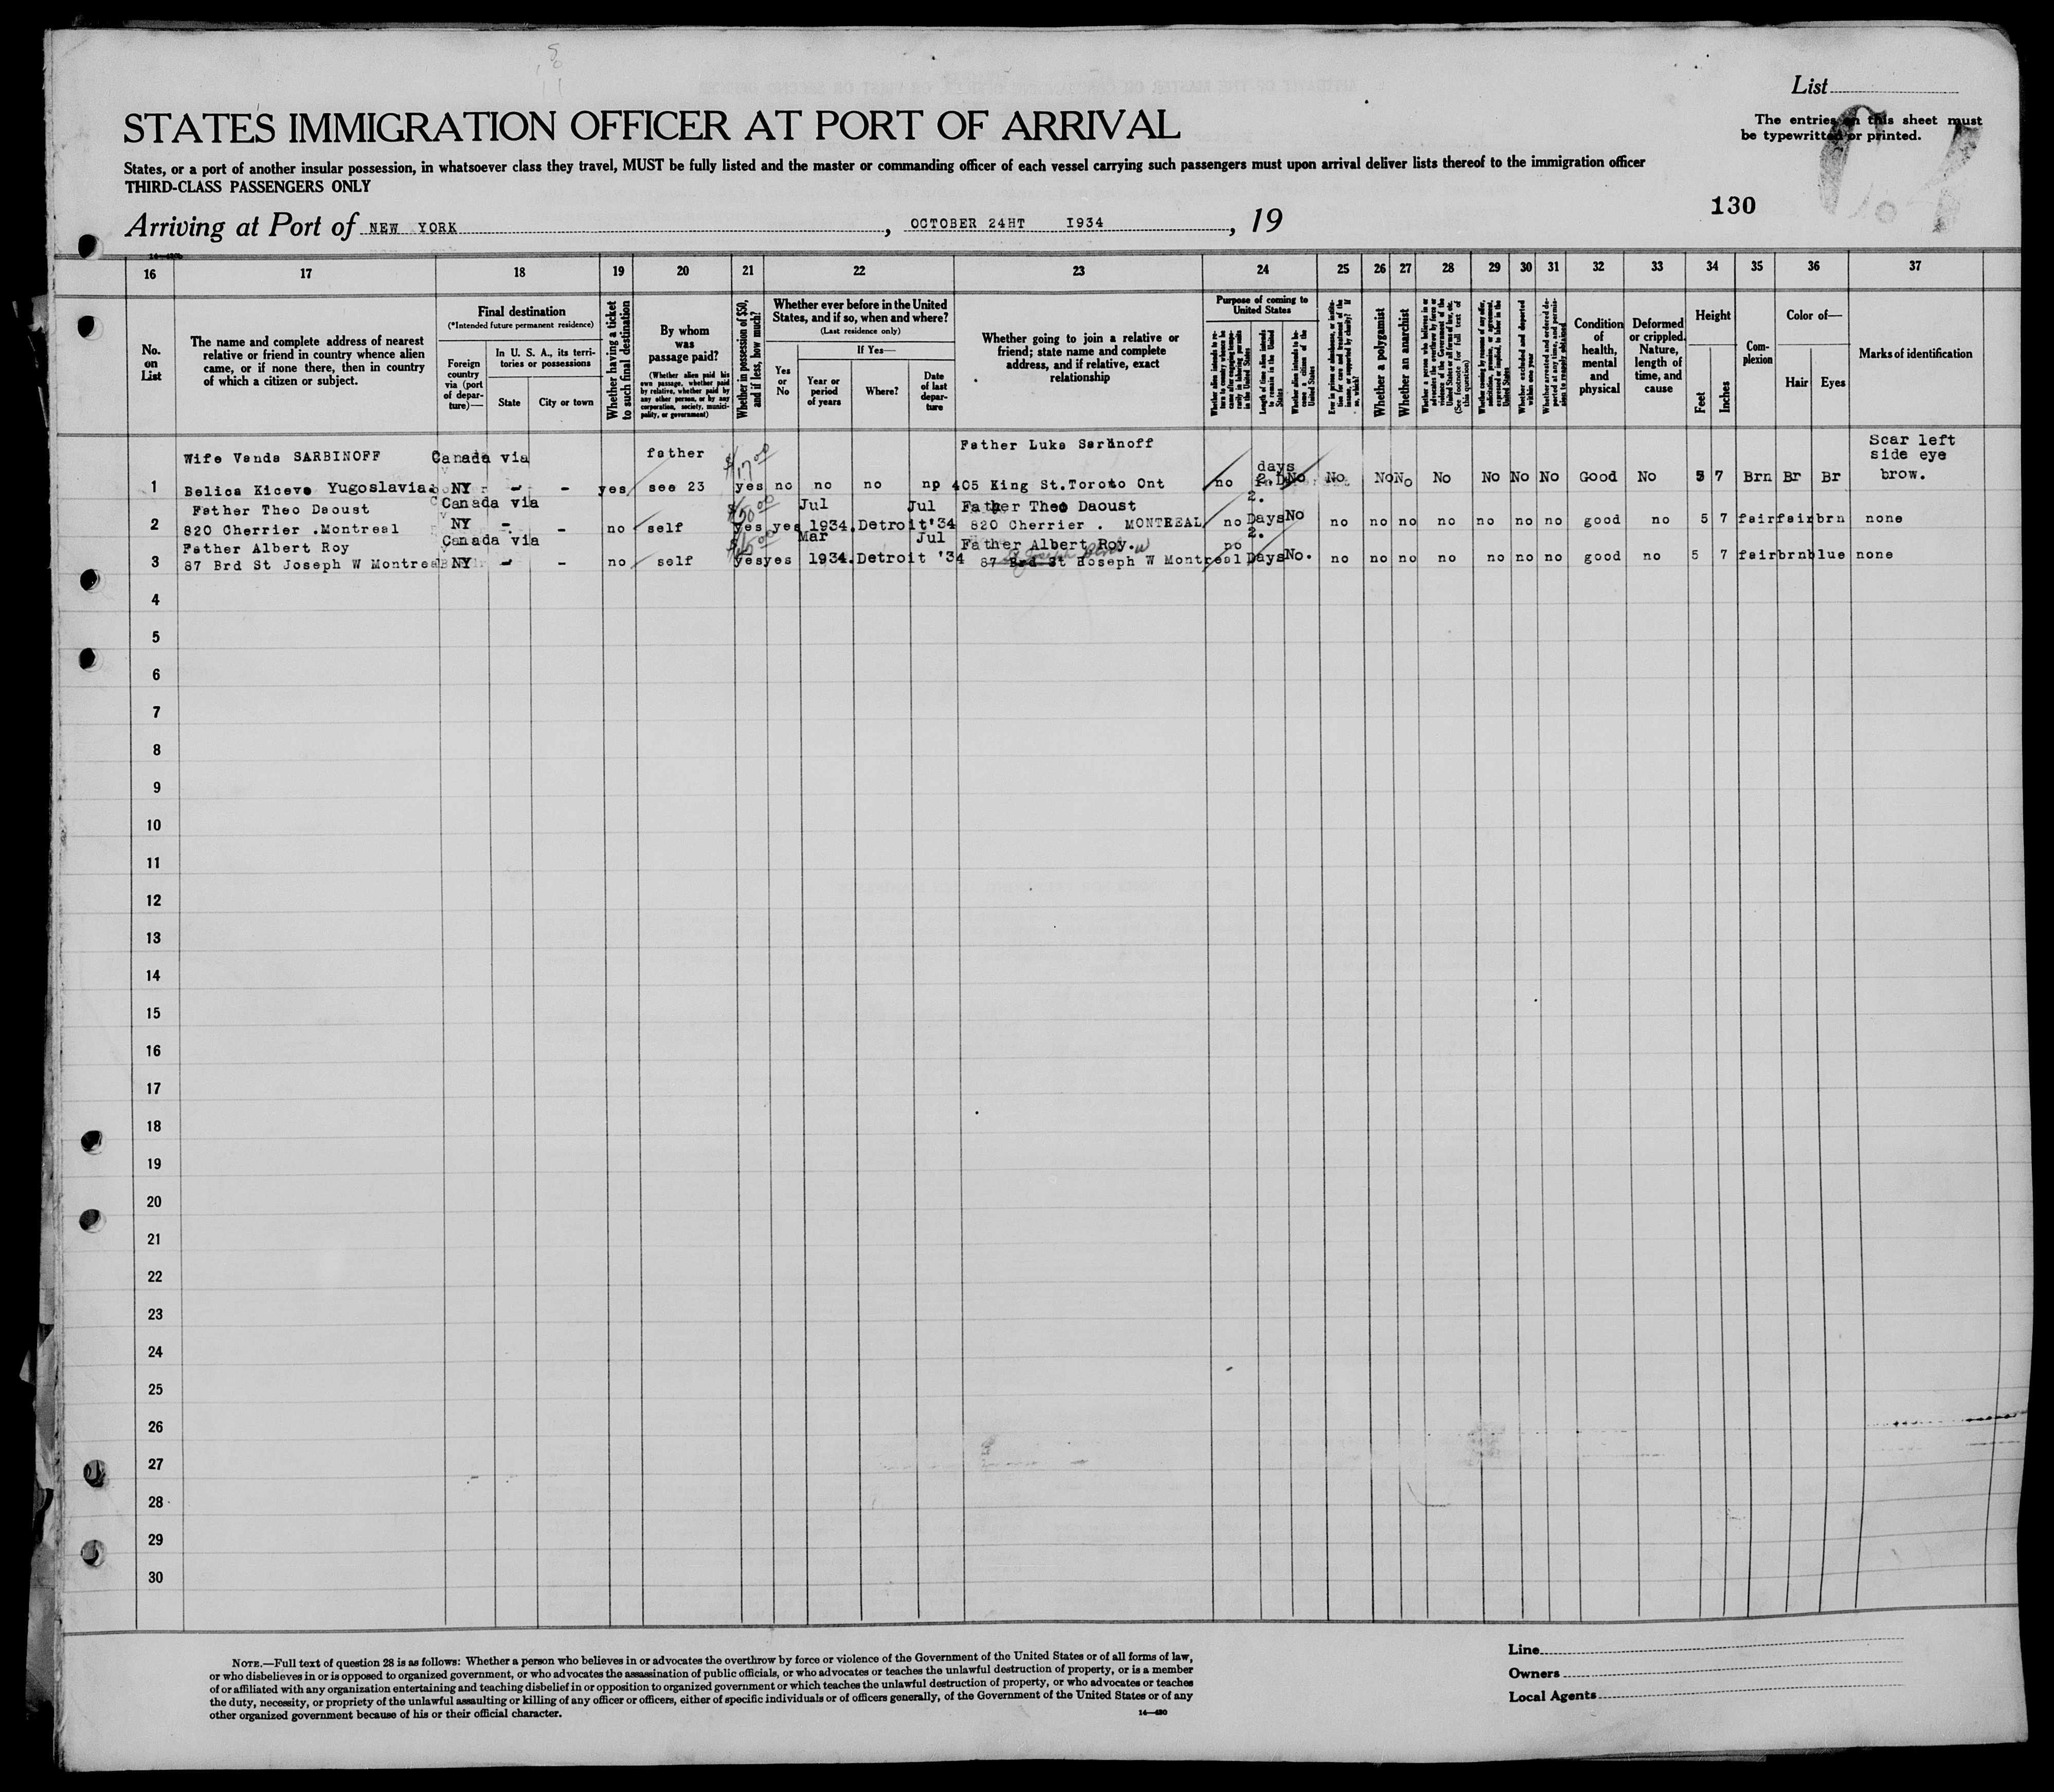 List
STATES IMMIGRATION OFFICER AT PORT OF ARRIVAL
The entries on this sheet must
be typewritten or printed.
States, or a port of another insular possession, in whatsoever class they travel, MUST be fully listed and the master or commanding officer of each vessel carrying such passengers must upon arrival deliver lists thereof to the immigration officer
THIRD-CLASS PASSENGERS ONLY
130
Arriving at Port of NEW YORK, OCTOBER 24HT 1934, 19
16 17 18 19 20 21 22 23 24 25 26 27 28 29 30 31 32 33 34 35 36 37
No.
on
List
The name and complete address of nearest
relative or friend in country whence alien
came, or if none there, then in country
of which a citizen or subject.
Final destination
(*Intended future permanent residence)
Foreign
country
via (port
of depar-
ture)—
In U. S. A., its terri-
tories or possessions
State
City or town
Whether having a ticket
to such final destination
By whom
was
passage paid?
(Whether alien paid his
own passage, whether paid
by relative, whether paid by
any other person, or by any
corporation, society, munici-
pality, or government)
Whether in possession of $50,
and if less, how much?
Whether ever before in the United
States, and if so, when and where?
(Last residence only)
Yes
or
No
If Yes—
Year or
period
of years
Where?
Date
of last
depar-
ture
Whether going to join a relative or
friend; state name and complete
address, and if relative, exact
relationship
Purpose of coming to
United States
Length of time alien intends
to remain in the United
States
Whether alien intends to be-
come a citizen of the
United States
Whether a polygamist
Whether an anarchist
Whether excluded and deported
within one year
Condition
of
health,
mental
and
physical
Deformed
or crippled.
Nature,
length of
time, and
cause
Height
Feet
Inches
Com-
plexion
Color of—
Hair
Eyes
Marks of identification
Wife Vanda SARBINOFF Canada via father $17.00 Father Luka Sarbinoff days Scar left
side eye
1 Belica Kicevo Yugoslavia. NY - - yes see 23 yes no no no no 405 King St.Toroto Ont no 2. No No No No No No No No Good No 5 7 Brn Br Br brow.
Father Theo Daoust Canada via $50.00 Jul Jul Father Theo Daoust 2.
2 820 Cherrier .Montreal NY - - no self yes yes 1934. Detroit '34 820 Cherrier . MONTREAL no Days No no no no no no no no good no 5 7 fair fair brn none
Father Albert Roy Canada via Mar Jul Father Albert Roy. no 2.
3 87 Brd St Joseph W Montreal NY - - no self yes yes 1934. Detroit '34 87 Brd St Hoseph W Montreal Days No. no no no no no no no good no 5 7 fair brn blue none
4
5
6
7
8
9
10
11
12
13
14
15
16
17
18
19
20
21
22
23
24
25
26
27
28
29
30
NOTE.—Full text of question 28 is as follows: Whether a person who believes in or advocates the overthrow by force or violence of the Government of the United States or of all forms of law,
or who disbelieves in or is opposed to organized government, or who advocates the assassination of public officials, or who advocates or teaches the unlawful destruction of property, or is a member
of or affiliated with any organization entertaining and teaching disbelief in or opposition to organized government or which teaches the unlawful destruction of property, or who advocates or teaches
the duty, necessity, or propriety of the unlawful assaulting or killing of any officer or officers, either of specific individuals or of officers generally, of the Government of the United States or of any
other organized government because of his or their official character.
14—430
Line
Owners
Local Agents